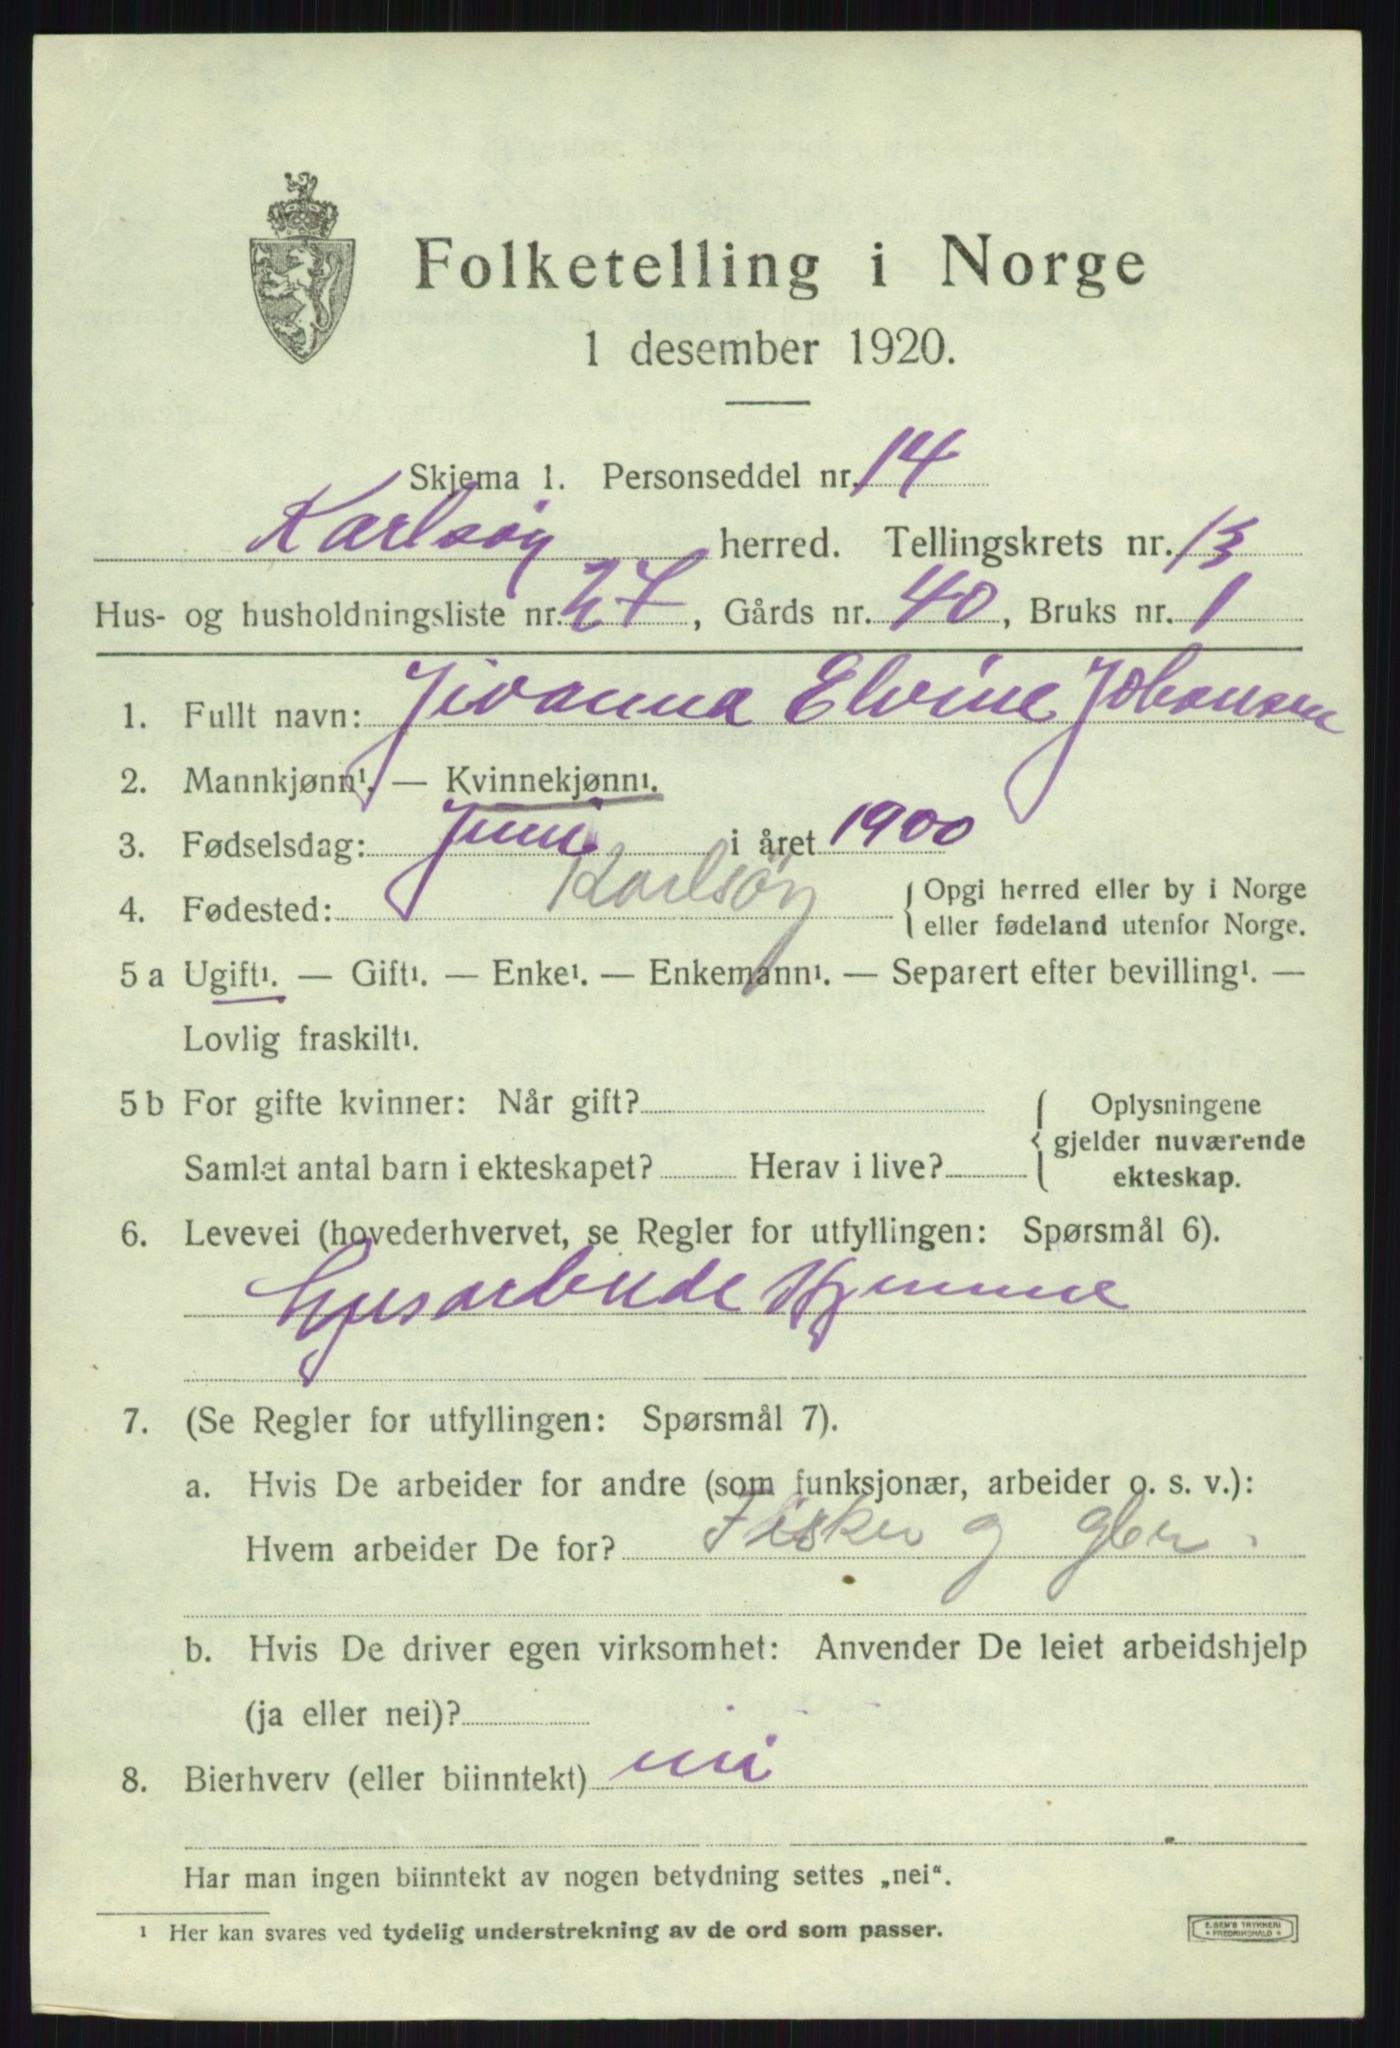 Folketelling i Norge
1 desember 1920.
Skjema 1. Personseddel nr. 14
Karlsøy herred. Tellingskrets nr. 13
Hus- og husholdningsliste nr. 27, Gårds nr. 40, Bruks nr. 1
1. Fullt navn: Jivanna Elvine Johansen
2. Mannkjønn¹. — Kvinnekjønn¹.
3. Fødselsdag: Juni i året 1900
4. Fødested: Karlsøy { Opgi herred eller by i Norge
eller fødeland utenfor Norge.
5 a Ugift¹. — Gift¹. — Enke¹. — Enkemann¹. — Separert efter bevilling¹. —
Lovlig fraskilt¹.
5 b For gifte kvinner: Når gift? { Oplysningene
gjelder nuværende
Samlet antal barn i ekteskapet? Herav i live? ekteskap.
6. Levevei (hovederhvervet, se Regler for utfyllingen: Spørsmål 6).
Husarbeide Hjemme
7. (Se Regler for utfyllingen: Spørsmål 7).
a. Hvis De arbeider for andre (som funksjonær, arbeider o. s. v.):
Hvem arbeider De for? Fisker og gbr.
b. Hvis De driver egen virksomhet: Anvender De leiet arbeidshjelp
(ja eller nei)?
8. Bierhverv (eller biinntekt) nei
Har man ingen biinntekt av nogen betydning settes „nei“.
¹ Her kan svares ved tydelig understrekning av de ord som passer.
E. SEM'S TRYKKERI
* FREDRIKSHALD *